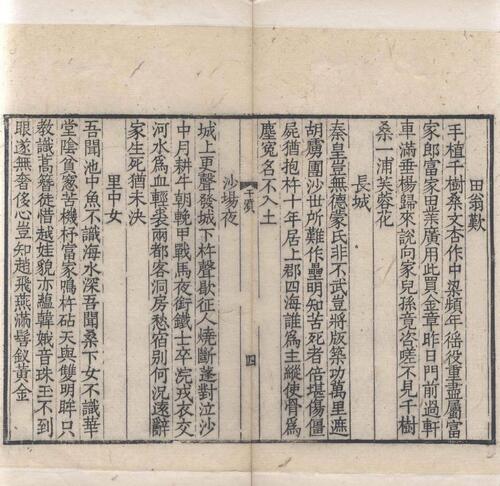 田翁歎
手植千樹桑文杏作中梁頻年徭役重盡屬富
家郎富家田業廣用此買金章昨日門前過軒
車滿垂楊歸來說向家兒孫竟咨嗟不見千樹
桑一浦芙蓉花
長城
秦皇豈無德蒙氏非不武豈將版築功萬里遮
胡虜團沙世所難作壘明知苦死者倍堪傷僵
屍猶抱杵十年居上郡四海誰爲主縱使骨爲
塵寃名不入土
于濆
四
沙場夜
城上更聲發城下杵聲歇征人燒斷蓬對泣沙
中月耕牛朝輓甲戰馬夜銜鐵士卒浣戎衣交
河水爲血輕裘兩都客洞房愁宿別何況遠辭
家生死猶未決
里中女
吾聞池中魚不識海水深吾聞桑下女不識華
堂陰貧窻苦機杼富家鳴杵砧天與雙明眸只
教識蒿簪徒惜越娃貌亦蘊韓娥音珠玉不到
眼遂無奢侈心豈知趙飛燕滿髻釵黃金